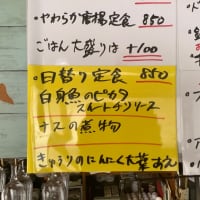 ・やわらか唐揚定食 850
ごはん大盛りは +100
・日替り定食 850
白身魚のピカタ
スイートチリソース
ナスの煮物
きゅうりのにんにく大葉あえ